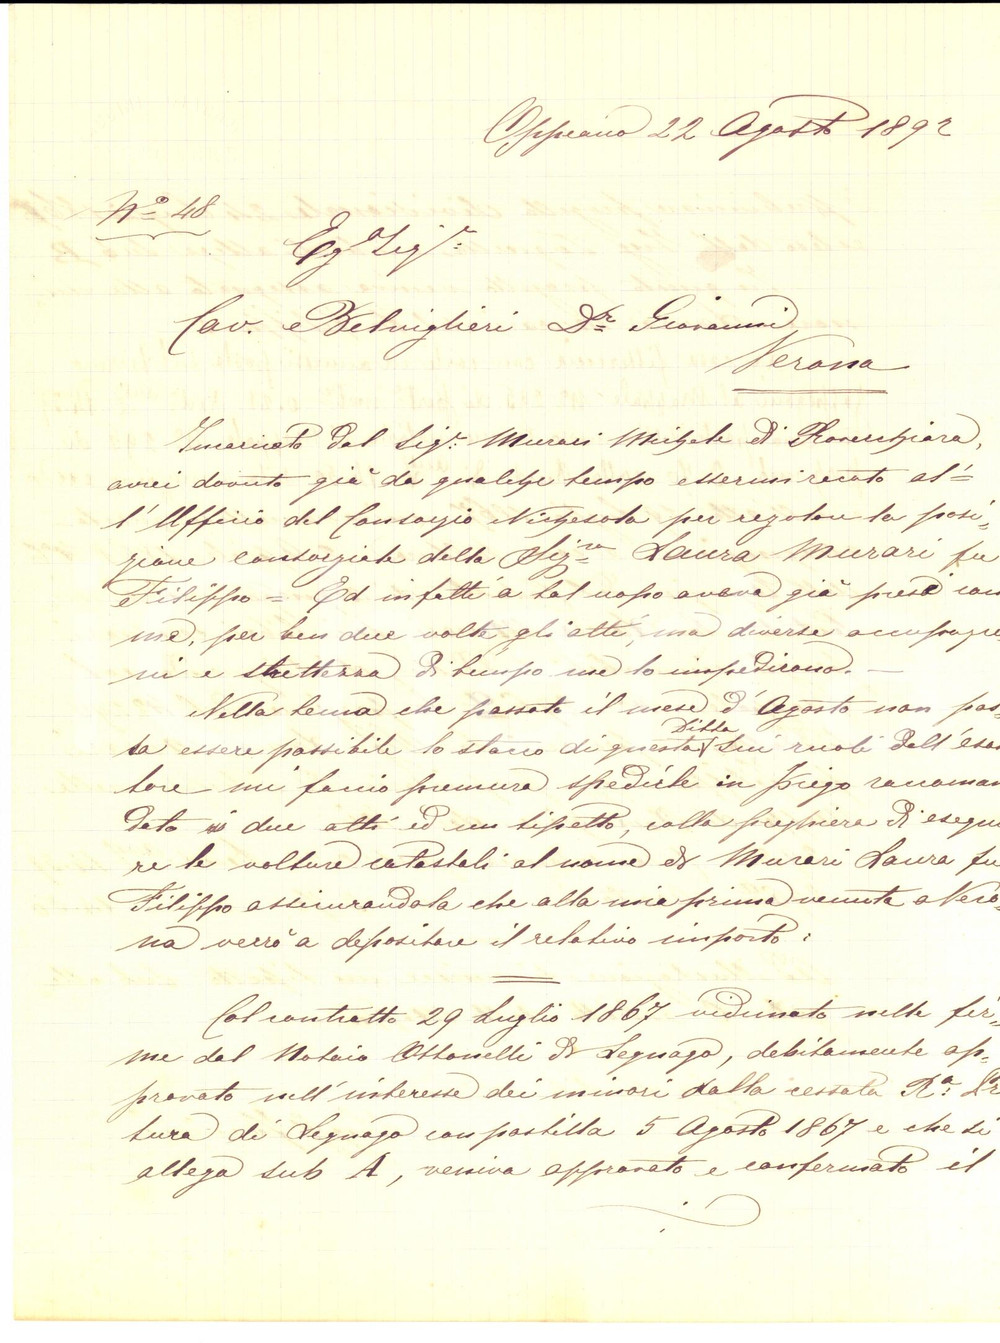 Oppeano 22 Agosto 1892
No 48
Eg. Sigr.
Cav. Belviglieri Dr. Giovanni
Verona
Incaricato dal Sigr. Murari Michele di Roverchiara,
avrei dovuto già da qualche tempo essermi recato al=
l'Ufficio del Consorzio Nichesola per regolare la posi=
zione consorziale della Sigra Laura Murari fu
Filippo = Ed infatti a tal uopo aveva già presi con
me, per ben due volte gli atti, ma diverse accupazio
ni e strettezza di tempo me lo impedirono. —
Nella tema che passato il mese d'Agosto non pos=
sa essere possibile lo staco di questa Ditta sui ruoli dall'esat
tore mi facio premura spedirle in piego raccoman
dato i due atti ed un tipetto, colla preghiera di esegui
re le volture catastali al nome di Murari Laura fu
Filippo assicurandola che alla mia prima venuta a Vero=
na verrò a depositare il relativo importo:
Col contratto 29 Luglio 1867 vidimato nelle fir=
me dal Notaio Ottonelli di Legnago, debitamente ap=
provato nell'interesse dei minori dalla cessata Ra. Pre
tura di Legnago con postilla 5 Agosto 1867 e che si
allega sub A, veniva approvato e confermato il